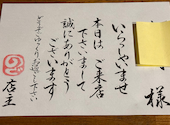 様
いらっしゃいませ
本日は ご来店
下さいまして
誠にありがとう
ございます
どうぞごゆっくりお過し下さい
店主